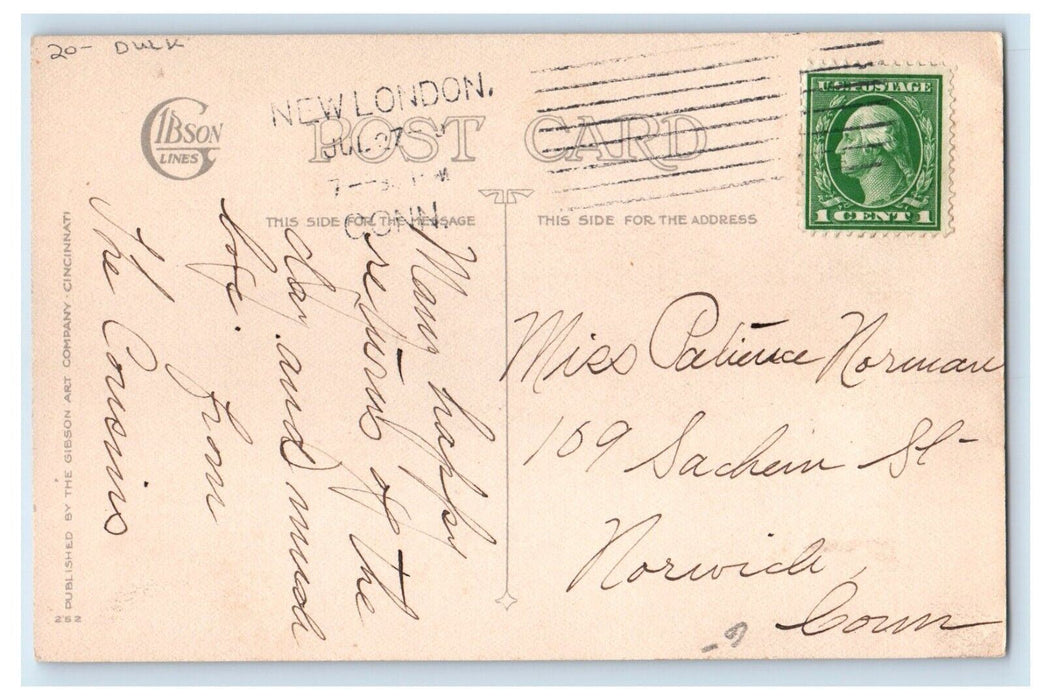 20- Duck
GIBSON
LINES
NEW LONDON,
JUL 27
7-
CONN.
POST CARD
U.S. POSTAGE
1 CENT 1
THIS SIDE FOR THE MESSAGE
THIS SIDE FOR THE ADDRESS
Many happy
returns of the
day and much
love.
from
The Cousins
Miss Patience Norman
109 Sachem St-
Norwich,
Conn
252 PUBLISHED BY THE GIBSON ART COMPANY, CINCINNATI